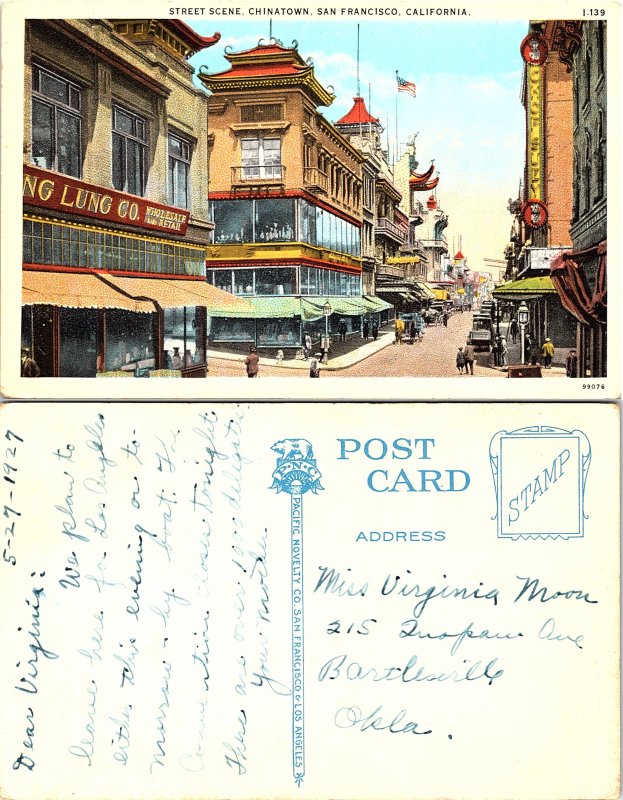 STREET SCENE, CHINATOWN, SAN FRANCISCO, CALIFORNIA.
I.139
NG LUNG CO. WHOLESALE AND RETAIL
CHOP SUEY
99076
5-27-1927
Dear Virginia:
We plan to
leave here for Los Angeles
either this evening or to-
morrow - by boat. The
Convention closes tonight
There are over 1000 delegates.
Your mother
PNC
PACIFIC NOVELTY CO. SAN FRANCISCO & LOS ANGELES
POST
CARD
STAMP
ADDRESS
Miss Virginia Moon
215 Ave
Bartlesville
Okla.